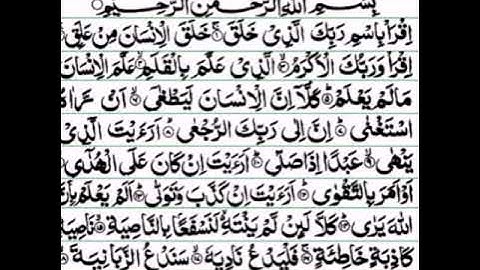 بِسْمِ اللهِ الرَّحْمٰنِ الرَّحِيْمِ
اِقْرَاْ بِاسْمِ رَبِّكَ الَّذِيْ خَلَقَ ۚ خَلَقَ الْاِنْسَانَ مِنْ عَلَقٍ
اِقْرَاْ وَرَبُّكَ الْاَكْرَمُ ۙ الَّذِيْ عَلَّمَ بِالْقَلَمِ ۙ عَلَّمَ الْاِنْسَانَ
مَا لَمْ يَعْلَمْ ؕ كَلَّاۤ اِنَّ الْاِنْسَانَ لَيَطْغٰۤى ۙ اَنْ رَّاٰهُ
اسْتَغْنٰى ؕ اِنَّ اِلٰى رَبِّكَ الرُّجْعٰى ؕ اَرَءَيْتَ الَّذِيْ
يَنْهٰى ۙ عَبْدًا اِذَا صَلّٰى ؕ اَرَءَيْتَ اِنْ كَانَ عَلَى الْهُدٰۤى
اَوْ اَمَرَ بِالتَّقْوٰى ؕ اَرَءَيْتَ اِنْ كَذَّبَ وَتَوَلّٰى ؕ اَلَمْ يَعْلَمْ بِاَنَّ
اللهَ يَرٰى ؕ كَلَّا لَئِنْ لَّمْ يَنْتَهِ ۙ لَنَسْفَعًا بِالنَّاصِيَةِ ۙ نَاصِيَةٍ
كَاذِبَةٍ خَاطِئَةٍ ۚ فَلْيَدْعُ نَادِيَهٗ ۙ سَنَدْعُ الزَّبَانِيَةَ